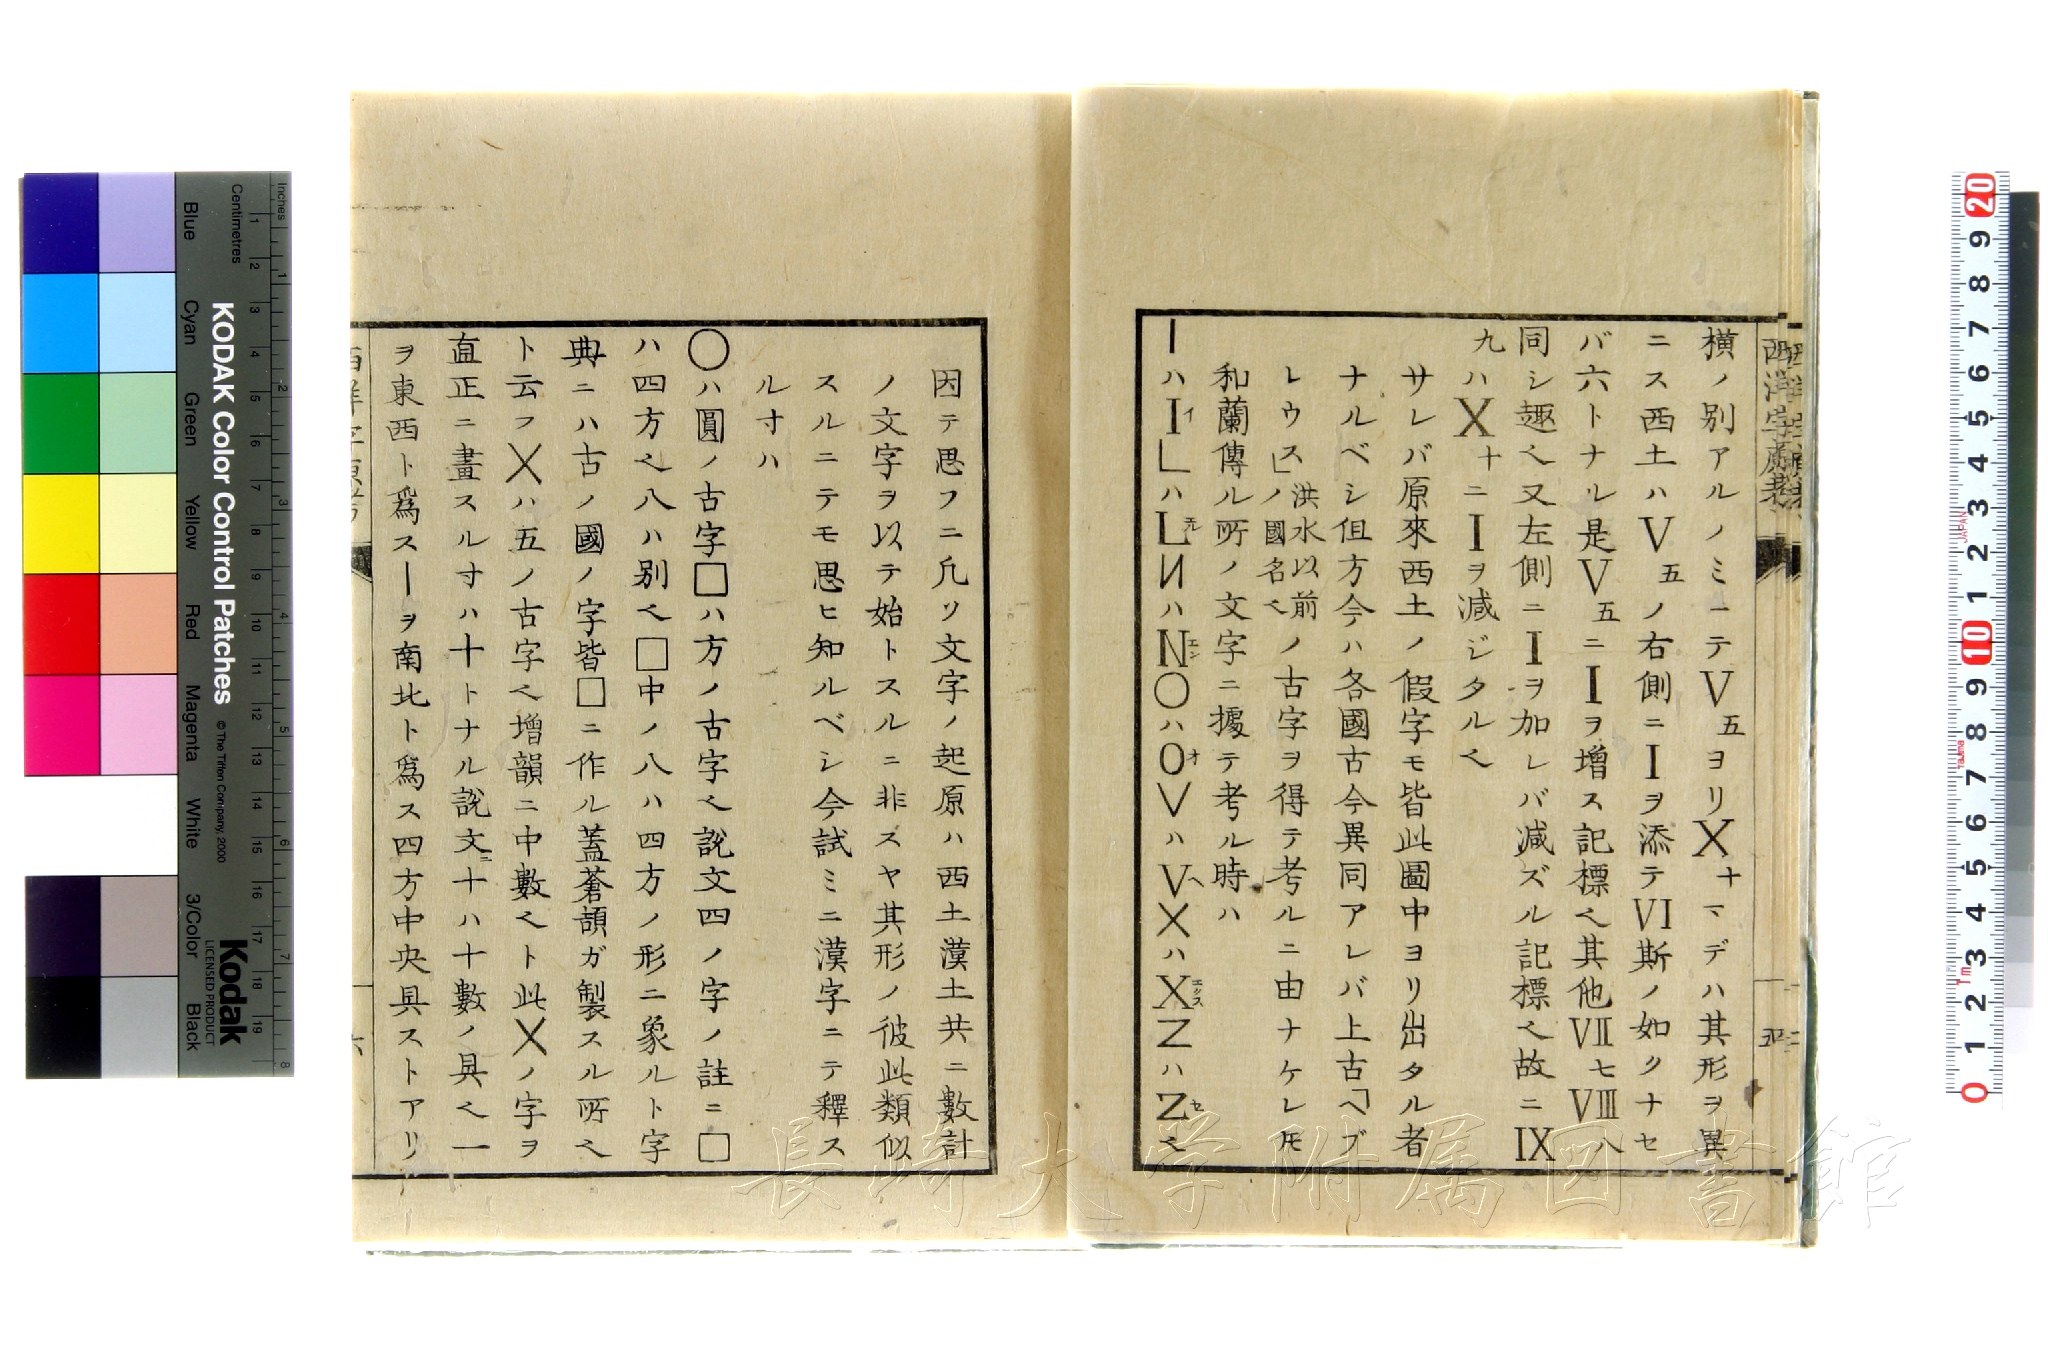 横ノ別アルノミニテV五ヨリX十マデハ其形ヲ異
ニス西土ハV五ノ右側ニIヲ添テVI斯ノ如クナセ
バ六トナル是V五ニIヲ増ス記標ヘ其他VII七VIII八
同シ趣ヘ又左側ニIヲ加レバ減ズル記標ヘ故ニIX
九ハX十ニIヲ減ジタルヘ
サレバ原來西土ノ假字モ皆此圖中ヨリ出タル者
ナルベシ但方今ハ各國古今異同アレバ上古「ヘブ
レウス」洪水以前ノ國名ヘノ古字ヲ得テ考ルニ由ナケレ𪜈
和蘭傳ル所ノ文字ニ據テ考ル時ハ
ーハIイLハLエルИハNエン〇ハOオVハVヘXハXエッスZハZセヘ
因テ思フニ凡ソ文字ノ起原ハ西土漢土共ニ數計
ノ文字ヲ以テ始トスルニ非スヤ其形ノ彼此類似
スルニテモ思ヒ知ルベシ今試ミニ漢字ニテ釋ス
ル寸ハ
〇ハ圓ノ古字□ハ方ノ古字ヘ說文四ノ字ノ註ニ□
ハ四方ヘ八ハ別ヘ□中ノ八ハ四方ノ形ニ象ルト字
典ニハ古ノ國ノ字皆□ニ作ル蓋蒼頡ガ製スル所ヘ
ト云フXハ五ノ古字ヘ增韻ニ中數ヘト此Xノ字ヲ
直正ニ畫スル寸ハ十トナル說文ニ十ハ十數ノ具ヘ一
ヲ東西ト爲スーヲ南北ト爲ス四方中央具ストアリ
西洋字原考
五
六
KODAK Color Control Patches
© The Tiffen Company, 2000
Kodak
LICENSED PRODUCT
Inches
Centimetres
Blue
Cyan
Green
Yellow
Red
Magenta
White
3/Color
Black
長崎大学附属図書館
JAPAN